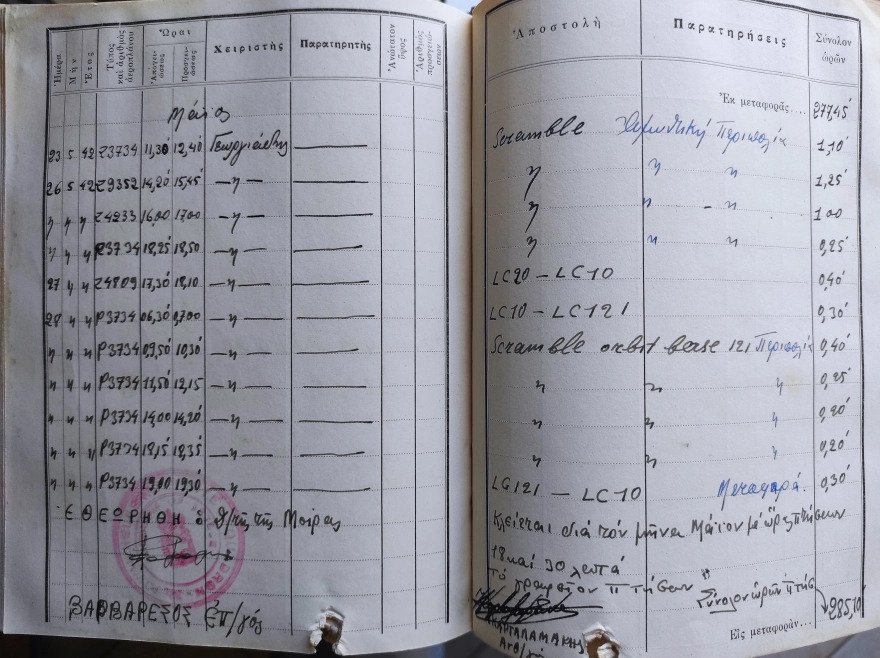 Ἡμέρα Μὴν Ἔτος Τύπος καὶ ἀριθμὸς ἀεροπλάνου Ὧραι Ἀπογειώσεως Προσγειώσεως Χειριστὴς Παρατηρητὴς Ἀνώτατον ὕψος Ἀριθμὸς προσγειώσεων
Μάϊος
23 5 42 Z3734 11,30 12,40 Γεωργιάδης
26 5 42 Z9352 14,20 15,45 —η—
η η η Z4233 16,00 17,00 —η—
η η η Z3734 18,25 18,50 —η—
27 η η Z4809 17,30 18,10 —η—
28 η η P3734 06,30 07,00 —η—
η η η P3734 09,50 10,30 —η—
η η η P3734 11,50 12,15 —η—
η η η P3734 14,00 14,20 —η—
η η η P3734 18,15 18,35 —η—
η η η P3734 19,00 19,30 —η—
ΕΘΕΩΡΗΘΗ ὁ Δ/τὴς τῆς Μοίρας
ΒΑΡΒΑΡΕΣΟΣ Ἐπ/γός
Ἀποστολὴ Παρατηρήσεις Σύνολον ὡρῶν
Ἐκ μεταφορᾶς.... 277,45
Scramble Περιπολία 1,10
η η η 1,25
η η - η 1 00
η η η 0,25
LC20 – LC10 0,40
LC10 – LC121 0,30
Scramble orbit base 121 Περιπολία 0,40
η η η 0,25
η η η 0,20
η η η 0,20
LG121 — LC10 Μεταφορά. 0,30
Κλείεται διὰ τὸν μῆνα Μάϊον μὲ ὥρας πτήσεων
18 καὶ 30 λεπτά
Τὸ γραφεῖον πτήσεων Σύνολον ὡρῶν πτήσ 285,10
Εἰς μεταφοράν...